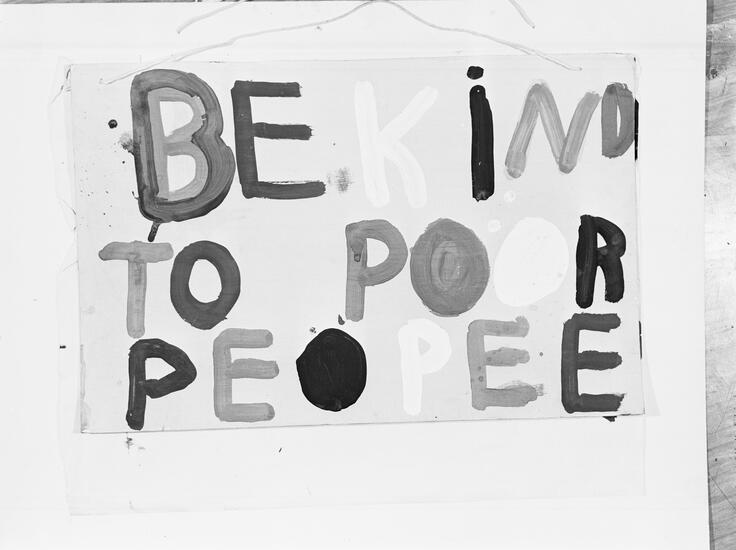 BE KiND
TO POOR
PEOPEE